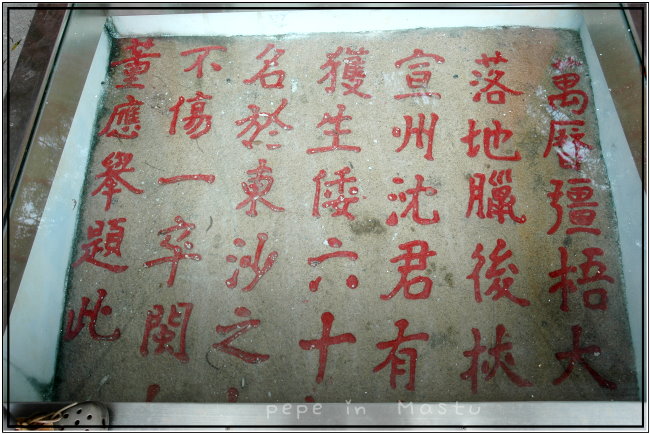 萬曆彊梧大
落地臘後挾
宣州沈君有
獲生倭六十
名於東沙之
不傷一卒閩
董應舉題此
pepe in Matsu